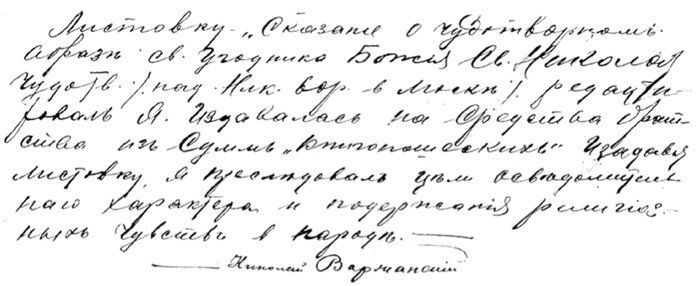 Листовку „Сказанie о чудотворномъ
образѣ св. угодника Божiя Св. Николая
Чудотв. / над Ник. вор. в Москвѣ / редакти
ровалъ я. Издавалась на средства брат
ства изъ суммъ „книгоношескихъ“ Издавая
листовку я преслѣдовалъ цѣли осведомитель
наго характера и подержанiя религiоз
ныхъ чувствъ в народѣ. —
— Николай Варжанскiй